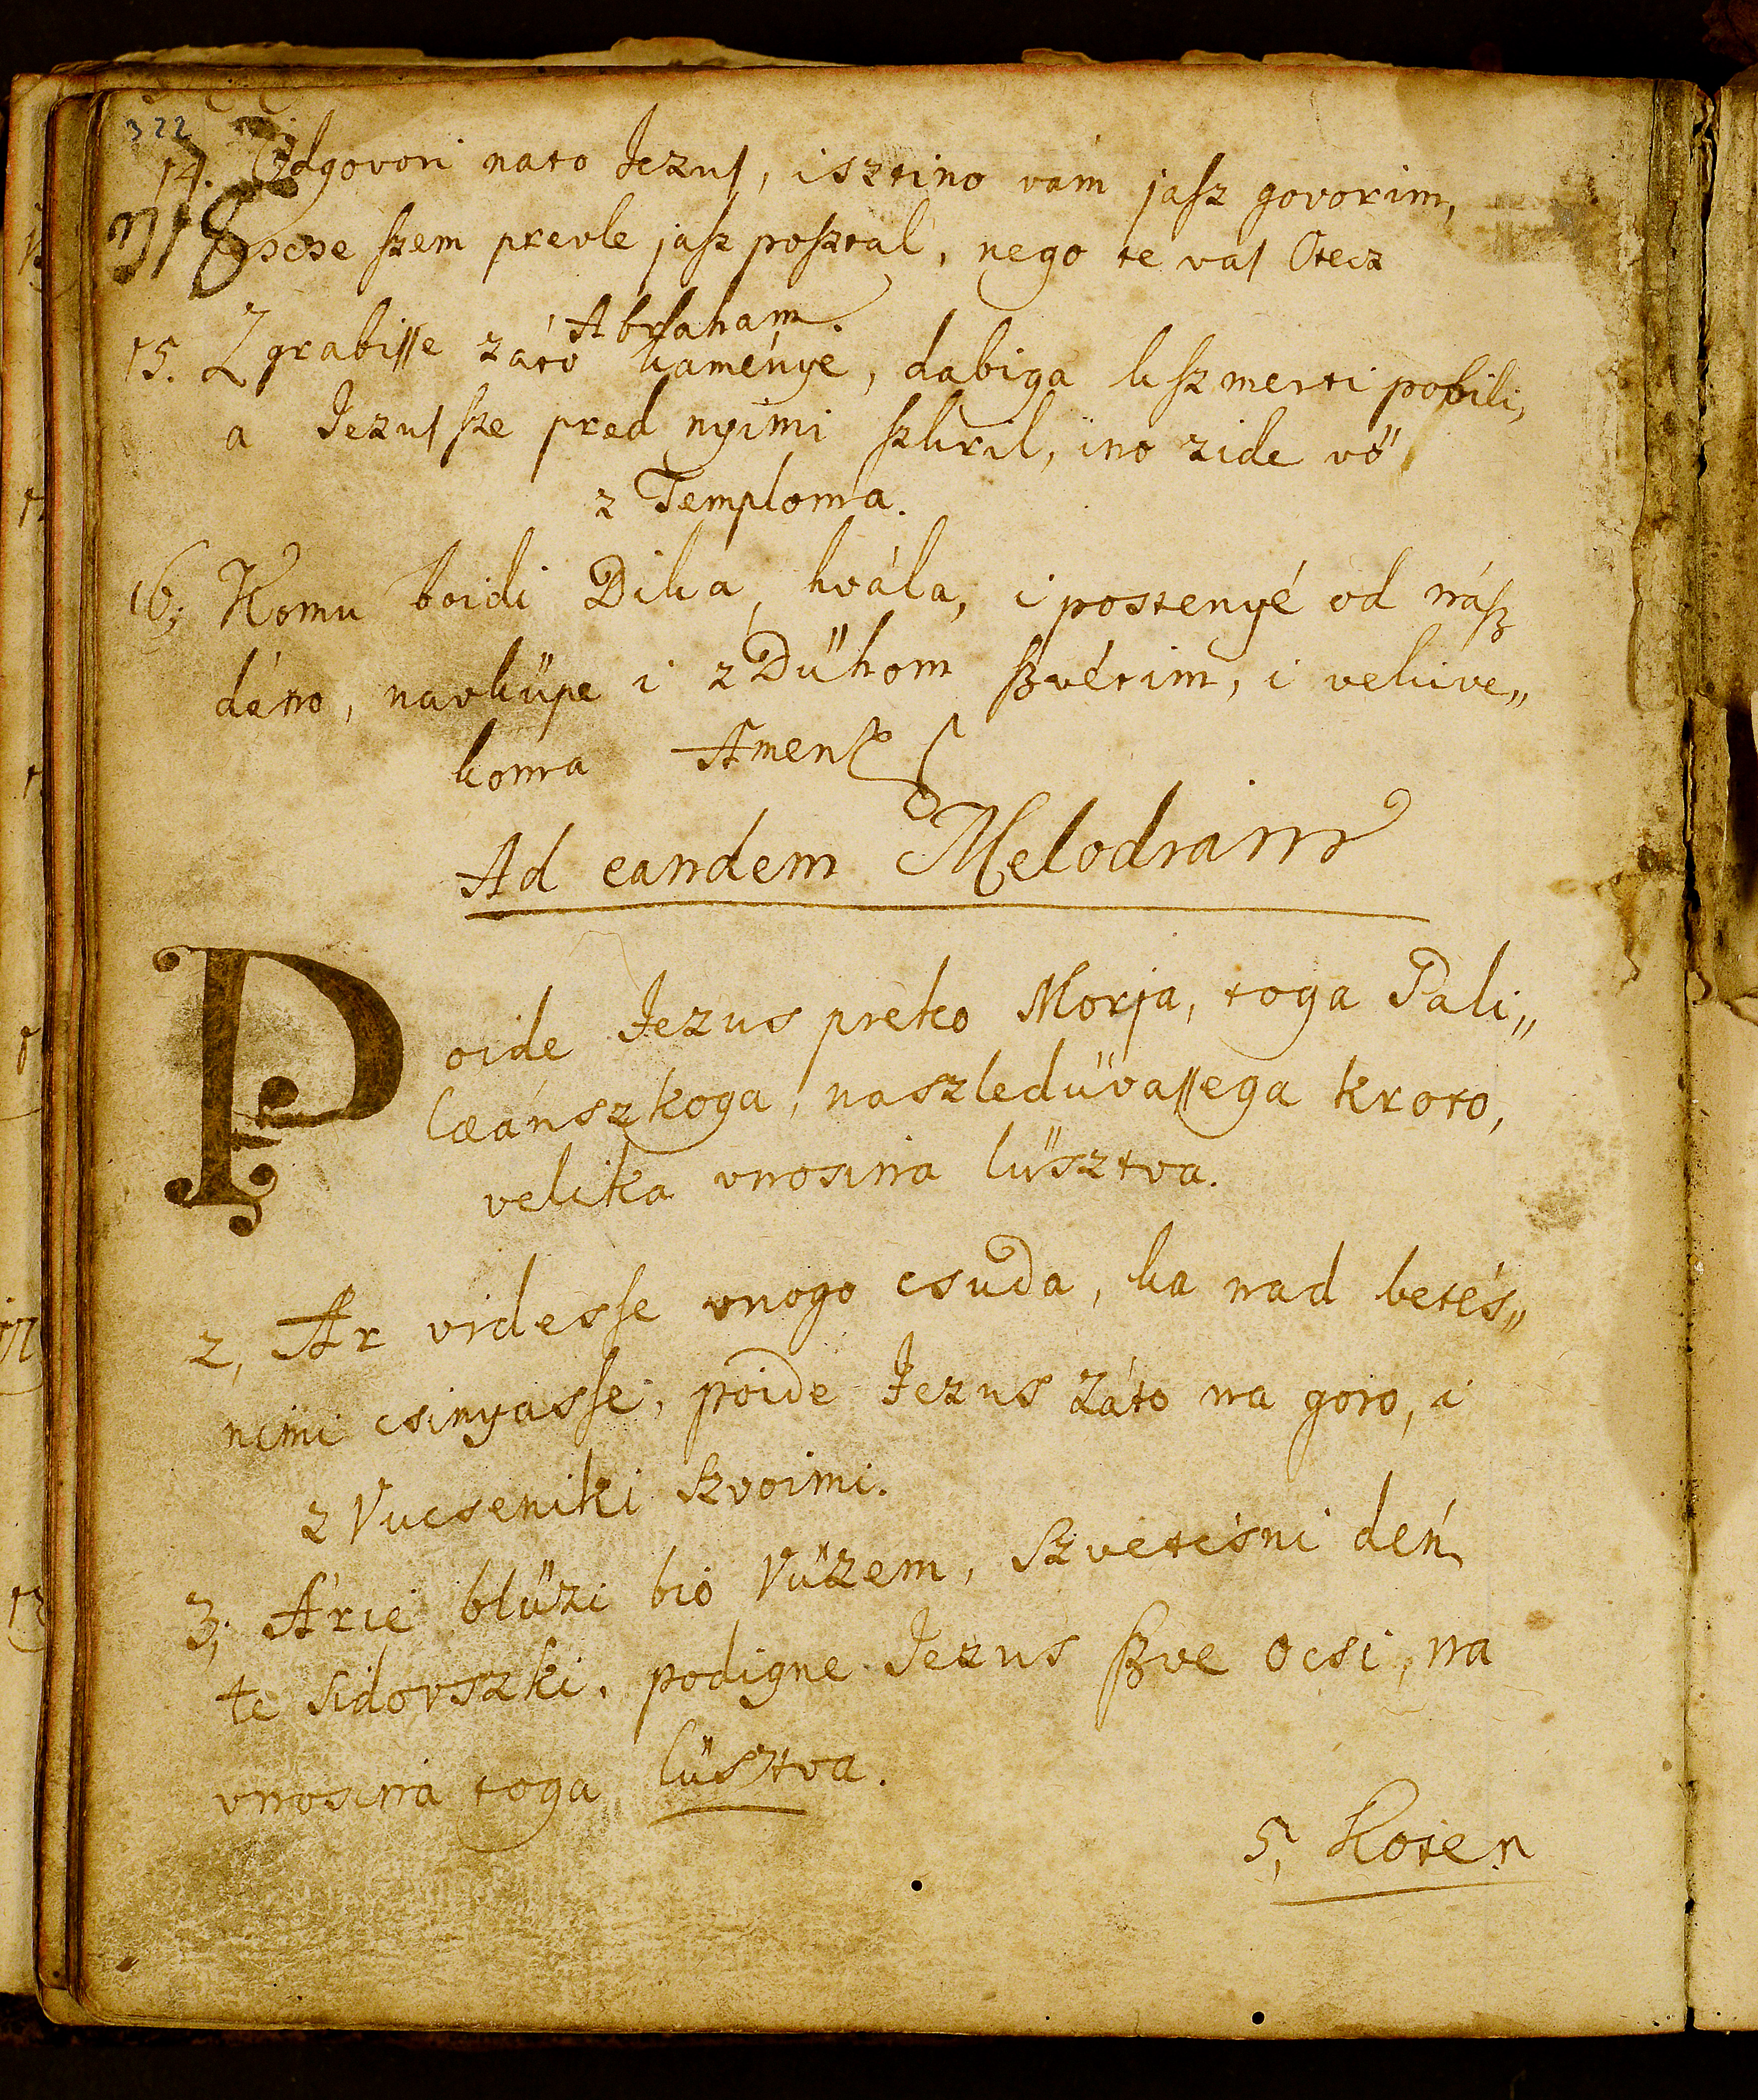 322
14. Odgovori nato Jezus, isztino vám jaſz govorim,
318 scse ſzem prevle jaſz poſztal, nego te vas Otecz
Abraham.
15. Zgrabiſſe záto kaménye, dabiga kſzmerti pobili,
a Jezus ſze pred nyimi ſzkril, ino zide vö
z Temploma.
16; Komu boidi Dika, hvála, i postenyé od náſz
dáno, navküpe i z Dühom ſzvétim, i vekive„
koma Amen
Ad eandem Melodiam
Poide Jezus preko Morja, toga Gali„
læánszkoga, naszledüvaſſega kroto,
velika vnosina lüsztva.
2, Ar videsſe vnogo csuda, ka nad betés„
nimi csinyasſe, poide Jezus záto na goro, i
z Vucseniki szvoimi.
3; Árie blüzi bio Vüzem, szvetésni dén
te sidovszki, podigne Jezus ſzve ocsi, na
vnosina toga lüsztva.
5, Koter